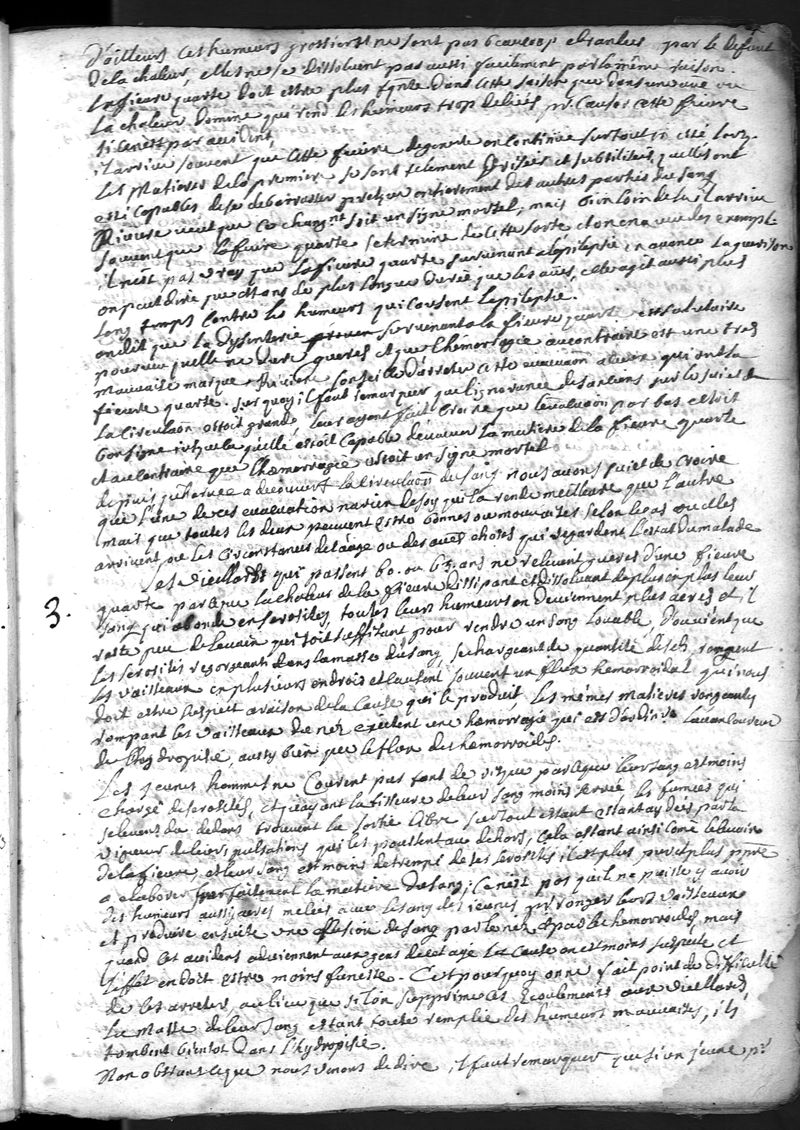 d'ailleurs ces humeurs grossieres ne sont pas beaucoup ebranlees par le defaut
de la chaleur, elles ne se dissolvent pas aussi facilement par la même raison.
la fievre quarte doit estre plus dans cette saison que dans une ou
la chaleur domine qui rend les humeurs trop deliées pr causer cette fievre
si ce n'est par accident,
il arrive souvent que cette fievre degenere en continue surtout en esté lorsq.
les matieres de la premiere se sont tellement et subtilisées, qu'elles ont
esté capables de se debarrasser presque entierement des autres parties du sang
Riviere veut que ce changemt soit un signe mortel, mais bien loin de la il arrive
souvent que la fievre quarte se termine de cette sorte et on en a veu des exempl.
il n'est pas vray que la fievre quarte survenant a l'epilepsie en avance la guerison
on peut dire que estant de plus longue durée que les aues, elle agit aussi plus
long temps contre les humeurs qui causent l'epilepsie.
on dit que la dysenterie survenant a la fievre quarte est salutaire
pourveu qu'elle ne dure gueres et que l'hemorragie au contraire est une tres
mauvaise marque. Riviere conseille d'arreter cette evacuaon a ceux qui ont la
fievre quarte. sur quoy il faut remarquer que l'ignorance des anciens sur le sujet de
la circulaon estoit grande, leur ayant fait croire que l'evacuaon par bas estoit
bon signe parceque elle estoit capable d'evacuer la matiere de la fievre quarte
et au contraire que l'hæmorragie estoit un signe mortel
depuis qu'harvée a decouvert la circulaon du sang nous avons sujet de croire
que l'une de ces evacuation n'a rien de soy qui la rende meilleure que l'autre
mais que toutes les deux peuvent estre bonnes ou mauvaises selon le cas ou elles
arrivent, ou les circonstances de l'aage ou des aues choses qui regardent l'estat du malade
Les vieillards qui passent 60. ou 63. ans ne relevent gueres d'une fievre
3. quarte parceque la chaleur de la fievre dissipant et dissolvant de plus en plus leur
sang qui abonde en serosités, toutes leurs humeurs en deviennent plus acres et il
reste peu de levain qui soit suffisant pour rendre un sang louable, d'ou vient que
les serosités regorgeant dans la masse du sang, se chargeant de quantité de sels, rongent
les vaisseaux en plusieurs endrois et causent souvent un flux hemorroidal qui nous
doit estre suspect a raison de la cause qui le produit, les mêmes matieres rongeantes
rompant les vaisseaux du nez excitent une hæmorragie qui est d'ordinre l'avancoureur
de l'hydropisie, aussy bien que le flux des hemorroides.
Les jeunes hommes ne courent pas tant de risque parceque leur sang est moins
chargé de serosités, et qu'ayant la tissure de leur sang moins serrée les fumées qui
s'elevent du dedans trouvent la sortie libre surtout estant aydées par la
vigueur de leurs pulsations qui les poussent au dehors, cela estant ainsi come le levain
de la fievre et leur sang est moins detrempé de ses serosités, il est plus pur et plus ppre
a elaborer parfaitement la matiere du sang; ce n'est pas qu'il ne puisse y avoir
des humeurs aussi acres melées avec le sang des jeunes pr ronger leurs vaisseaux
et produire ensuite une effusion de sang par le nez et par les hemorroides, mais
quand ces accidens adviennent aux gens de cet age la cause en est moins suspecte et
l'effet en doit estre moins funeste. C'est pourquoy on ne fait point de difficulté
de les arreter, au lieu que si l'on supprime ces ecoulements aux vieillards,
la masse de leur sang estant toute remplie des humeurs mauvaises, ils
tombent bientot dans l'hydropisie.
Non obstant ce que nous venons de dire, il faut remarquer que si un jeune pr